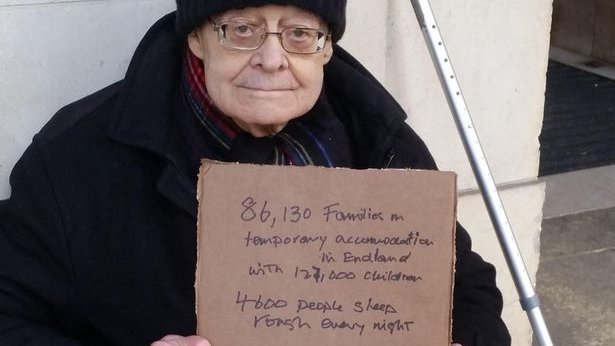 86,130 Families in
temporary accomodation
in Endland
with 127,000 children
4600 people sleep
rough every night